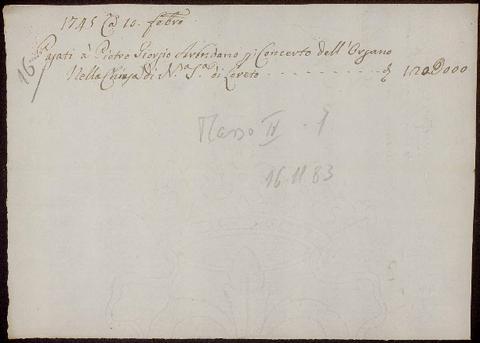 1745 10. febro
16
Pagati à Pietro Giorgio p Concerto dell'Organo
Nella Chiesa di N.a S.a di Loreto
Mazzo IV - 1
16 11 83